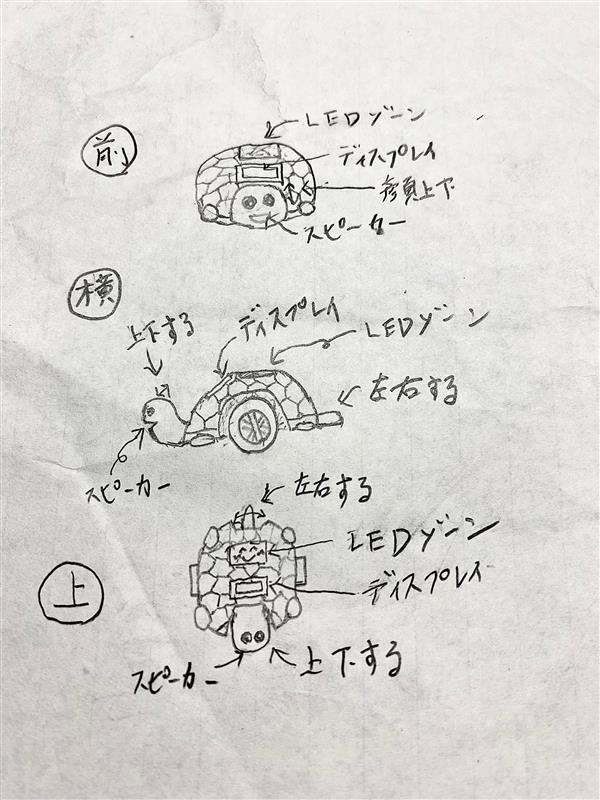 前
LEDゾーン
ディスプレイ
頭上下
スピーカー
横
上下する
ディスプレイ
LEDゾーン
左右する
スピーカー
左右する
LEDゾーン
ディスプレイ
上
スピーカー
上下する